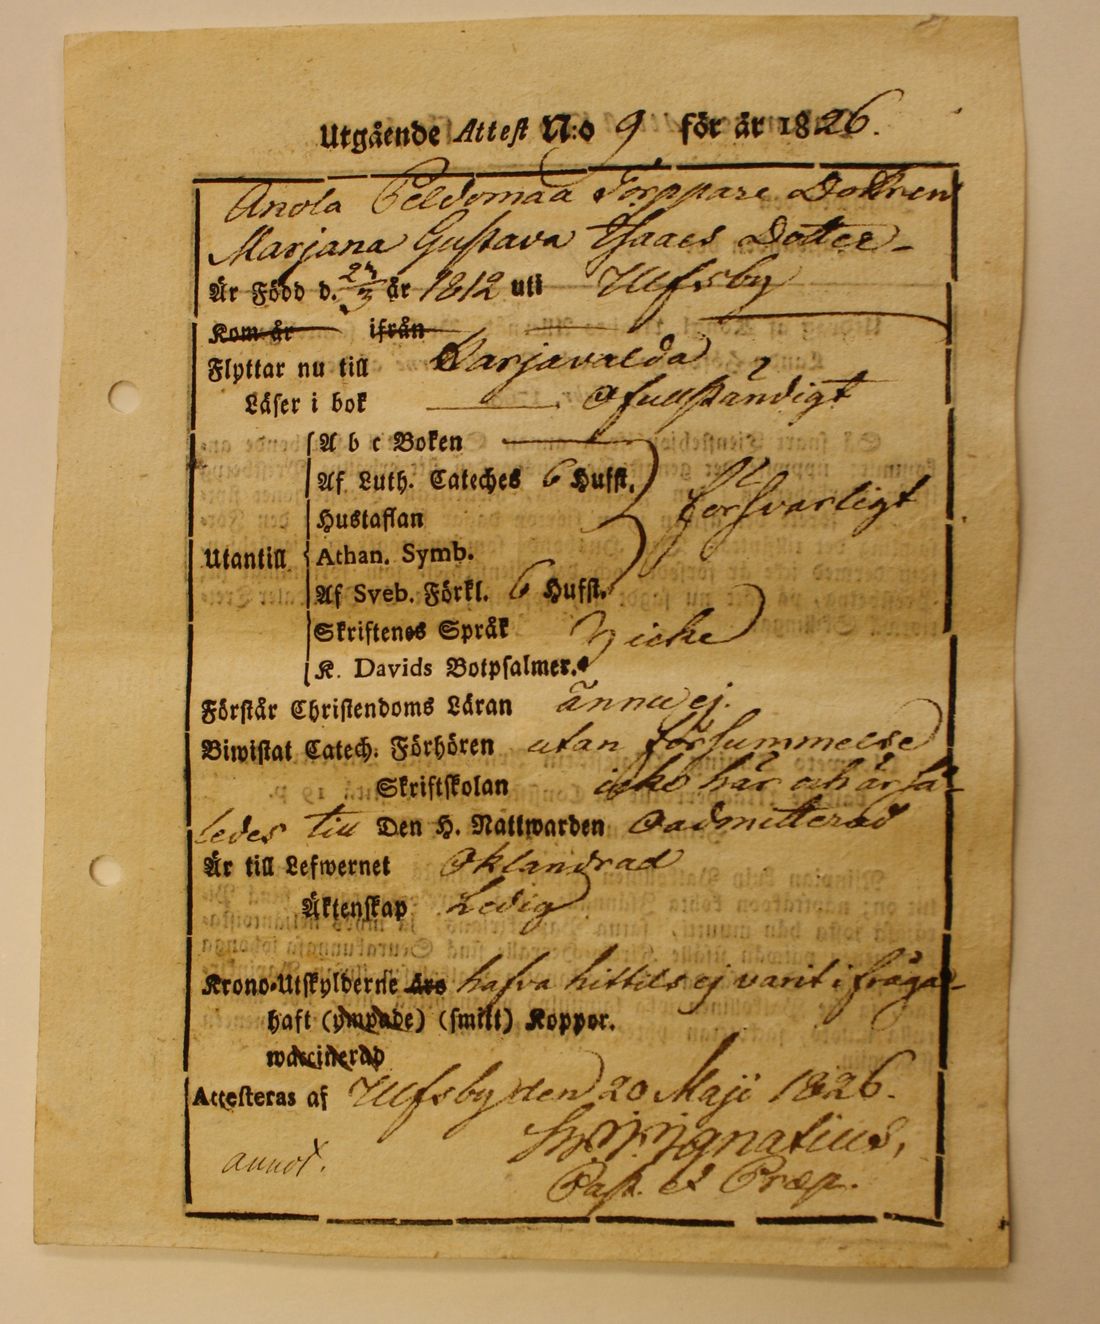 Utgående Attest N:o 9 för år 1826.
Anola Peldomaa Torppare Dottren
Marjana Gustava Isaacs Dotter
Är Född d. 24/3 år 1812 uti Ulfsby
Kom år ifrån
Flyttar nu till Harjavalda
Läser i bok ofullständigt
A b c Boken
Af Luth. Cateches 6 Hufst.
försvarligt
Hustaflan
Utantill Athan. Symb.
Af Sveb. Förkl. 6 Hufst.
Skriftenes Språk icke
K. Davids Botpsalmer.
Förstår Christendoms Läran ännu ej.
Biwistat Catech. Förhören utan försummelse
Skriftskolan icke här och är så-
ledes till Den H. Nattwarden oadmitterad
Är till Lefwernet Oklandrad
Äktenskap Ledig
Krono-Utskylderne års hafva hittils ej varit i fråga
haft (ympade) (smitt) Koppor.
waccinerad
Attesteras af Ulfsby den 20 Maji 1826.
Ignatius,
Past. et Præp.
annot.